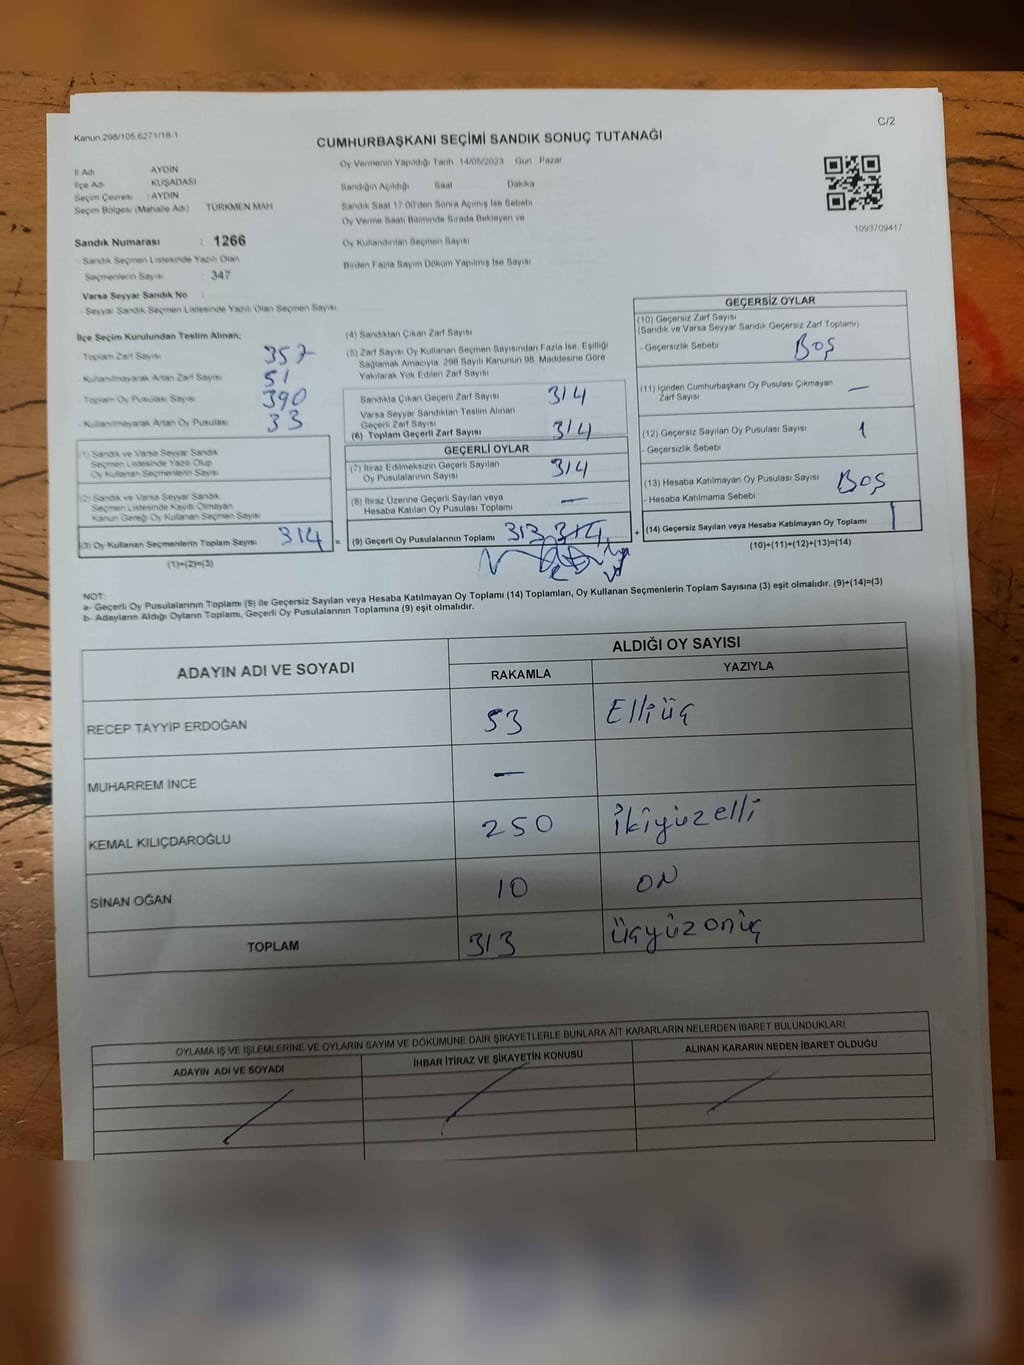 Kanun.298/105.6271/18-1
C/2
CUMHURBAŞKANI SEÇİMİ SANDIK SONUÇ TUTANAĞI
İl Adı AYDIN
İlçe Adı KUŞADASI
Seçim Çevresi : AYDIN
Seçim Bölgesi (Mahalle Adı) TÜRKMEN MAH
Sandık Numarası : 1266
- Sandık Seçmen Listesinde Yazılı Olan
Seçmenlerin Sayısı : 347
Varsa Seyyar Sandık No :
- Seyyar Sandık Seçmen Listesinde Yazılı Olan Seçmen Sayısı :
Oy Vermenin Yapıldığı Tarih 14/05/2023 Gün Pazar
Sandığın Açıldığı Saat Dakika
Sandık Saat 17:00'den Sonra Açımış İse Sebebi
Oy Verme Saati Bitiminde Sırada Bekleyen ve
Oy Kullandırılan Seçmen Sayısı
Birden Fazla Sayım Döküm Yapılmış İse Sayısı
1093709417
İlçe Seçim Kurulundan Teslim Alınan;
- Toplam Zarf Sayısı 357
- Kullanılmayarak Artan Zarf Sayısı 51
- Toplam Oy Pusulası Sayısı 390
- Kullanılmayarak Artan Oy Pusulası 33
(1) Sandık ve Varsa Seyyar Sandık
Seçmen Listesinde Yazılı Olup
Oy Kullanan Seçmenlerin Sayısı
(2) Sandık ve Varsa Seyyar Sandık
Seçmen Listesinde Kayıtlı Olmayan
Kanun Gereği Oy Kullanan Seçmen Sayısı
(3) Oy Kullanan Seçmenlerin Toplam Sayısı 314 =
(1)+(2)=(3)
(4) Sandıktan Çıkan Zarf Sayısı
(5) Zarf Sayısı Oy Kullanan Seçmen Sayısından Fazla İse, Eşitliği
Sağlamak Amacıyla, 298 Sayılı Kanunun 98. Maddesine Göre
Yakılarak Yok Edilen Zarf Sayısı
Sandıkta Çıkan Geçerli Zarf Sayısı 314
Varsa Seyyar Sandıktan Teslim Alınan
Geçerli Zarf Sayısı
(6) Toplam Geçerli Zarf Sayısı 314
GEÇERLİ OYLAR
(7) İtiraz Edilmeksizin Geçerli Sayılan
Oy Pusulasının Sayısı 314
(8) İtiraz Üzerine Geçerli Sayılan veya
Hesaba Katılan Oy Pusulası Toplamı —
(9) Geçerli Oy Pusulalarının Toplamı 313 314 +
GEÇERSİZ OYLAR
(10) Geçersiz Zarf Sayısı
(Sandık ve Varsa Seyyar Sandık Geçersiz Zarf Toplamı)
- Geçersizlik Sebebi BOŞ
(11) İçinden Cumhurbaşkanı Oy Pusulası Çıkmayan
Zarf Sayısı —
(12) Geçersiz Sayılan Oy Pusulası Sayısı 1
- Geçersizlik Sebebi
(13) Hesaba Katılmayan Oy Pusulası Sayısı BOŞ
- Hesaba Katılmama Sebebi
(14) Geçersiz Sayılan veya Hesaba Katılmayan Oy Toplamı 1
(10)+(11)+(12)+(13)=(14)
NOT:
a- Geçerli Oy Pusulalarının Toplamı (9) ile Geçersiz Sayılan veya Hesaba Katılmayan Oy Toplamı (14) Toplamları, Oy Kullanan Seçmenlerin Toplam Sayısına (3) eşit olmalıdır. (9)+(14)=(3)
b- Adayların Aldığı Oyların Toplamı, Geçerli Oy Pusulalarının Toplamına (9) eşit olmalıdır.
ADAYIN ADI VE SOYADI
ALDIĞI OY SAYISI
RAKAMLA YAZIYLA
RECEP TAYYİP ERDOĞAN 53 Elliüç
MUHARREM İNCE —
KEMAL KILIÇDAROĞLU 250 İkiyüzelli
SİNAN OĞAN 10 ON
TOPLAM 313 üçyüzonüç
OYLAMA İŞ VE İŞLEMLERİNE VE OYLARIN SAYIM VE DÖKÜMÜNE DAİR ŞİKAYETLERLE BUNLARA AİT KARARLARIN NELERDEN İBARET BULUNDUKLARI
ADAYIN ADI VE SOYADI
İHBAR İTİRAZ VE ŞİKAYETİN KONUSU
ALINAN KARARIN NEDEN İBARET OLDUĞU